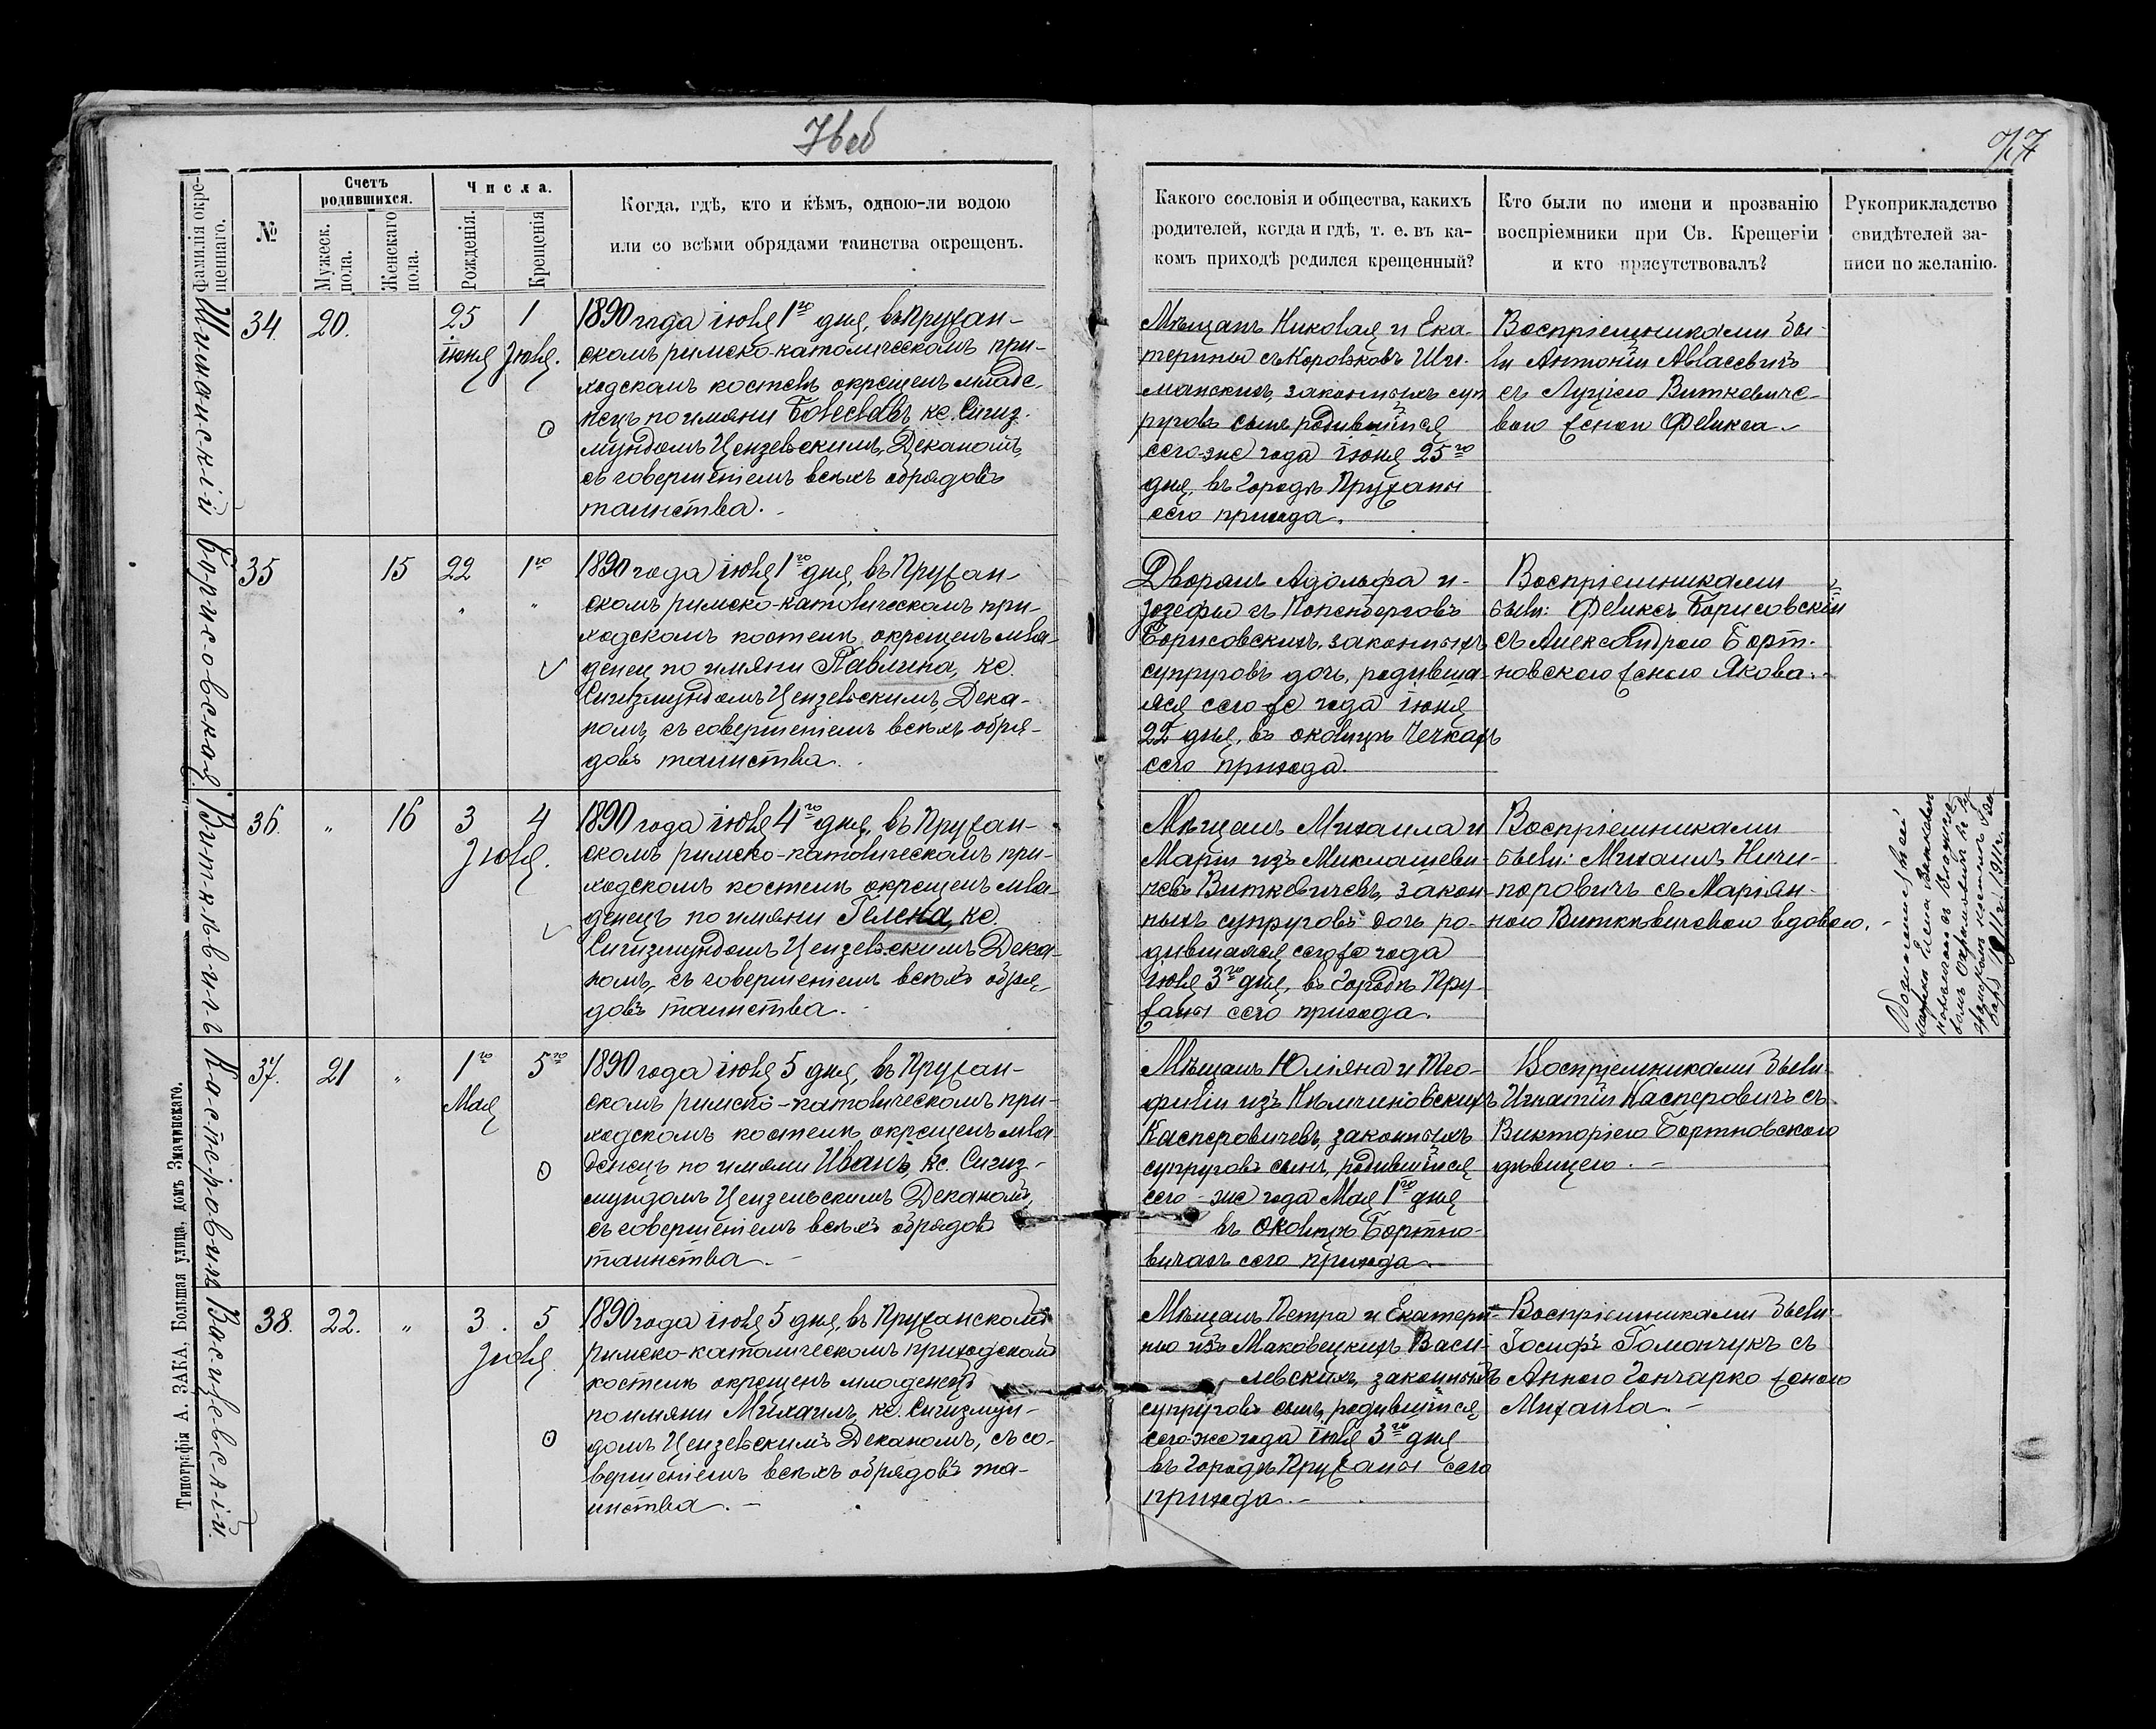 76 об
77
Фамилія окре-
щеннаго.
№
Счетъ
родившихся.
Мужеск.
пола.
Женскаго
пола.
Числа.
Рожденія.
Крещенія
Когда, гдѣ, кто и кѣмъ, одною-ли водою
или со всѣми обрядами таинства окрещенъ.
Какого сословія и общества, какихъ
родителей, когда и гдѣ, т. е. въ ка-
комъ приходѣ родился крещенный?
Кто были по имени и прозванію
воспріемники при Св. Крещеніи
и кто присутствовалъ?
Рукоприкладство
свидѣтелей за-
писи по желанію.
Шиманскій
34.
20.
25
іюня
1
Іюля.
1890 года іюля 1го дня, въ Пружан-
скомъ римско-католическомъ при-
ходскомъ костелѣ окрещенъ младе-
нецъ по имяни Болеславъ, кс. Сигиз-
мундомъ Цензельскимъ, Деканомъ,
съ совершеніемъ всѣхъ обрядовъ
таинства.
Мѣщанъ Николая и Ека-
терины съ Коробковъ Ши-
манскихъ, законныхъ суп
руговъ сынъ родившійся
сего-же года іюня 25го
дня, въ городѣ Пружаны
сего прихода.
Воспріемниками бы-
ли Антоній Авласевичъ
съ Луціею Виткевиче-
вою женою Феликса.
Борисовской
35
15
22
1го
1890 года іюля 1го дня, въ Пружан-
скомъ римско-католическомъ при-
ходскомъ костелѣ окрещенъ мла-
денец по имяни Павлина, кс.
Сигизмундомъ Цензельскимъ, Дека-
номъ, съ совершеніемъ всѣхъ обря-
довъ таинства.
Дворянъ Адольфа и
Іозефы съ Попенберговъ
Борисовскихъ, законныхъ
супруговъ дочь, родивша-
яся сего-же года іюня
22 дня, въ околицѣ Чечкахъ
сего прихода.
Воспріемниками
были: Феликсъ Борисовскій
съ Александрою Борт-
новскою женою Якова.
Виткѣвичъ
36.
"
16
3
4
Іюля.
1890 года іюля 4го дня, въ Пружан-
скомъ римско-католическомъ при-
ходскомъ костелѣ окрещенъ мла-
денецъ по имяни Гелена, кс.
Сигизмундомъ Цензельскимъ Дека-
номъ, съ совершеніемъ всѣхъ обря-
довъ таинства.
Мѣщанъ Михаила и
Маріи изъ Миклашеви-
чевъ Виткевичевъ, закон-
ныхъ супруговъ дочь ро-
дившаяся сего же года
іюля 3го дня, въ городѣ Пру-
жаны сего прихода.
Воспріемниками
были: Михаилъ Ничи-
поровичъ съ Маріян-
ною Виткѣвичевою вдовою.
Касперовичъ
37.
21
"
1го
Мая
5го
1890 года іюля 5 дня, въ Пружан-
скомъ римско-католическомъ при-
ходскомъ костелѣ окрещенъ мла-
денецъ по имяни Иванъ, кс. Сигиз-
мундомъ Цензельскимъ Деканомъ,
съ совершеніемъ всѣхъ обрядовъ
таинства.
Мѣщанъ Юліяна и Тео-
филіи изъ Нѣмчиновскихъ
Касперовичевъ, законныхъ
супруговъ сынъ, родившійся
сего-же года Мая 1го дня
въ околицѣ Бортно-
вичахъ сего прихода.
Воспріемниками были:
Игнатій Касперовичъ съ
Викторіею Бортновскою
дѣвицею.
Василевскій.
38.
22.
"
3.
5
Іюля.
1890 года іюля 5 дня, въ Пружанскомъ
римско-католическомъ приходскомъ
костелѣ окрещенъ младенецъ
по имяни Михаилъ, кс. Сигизмун-
домъ Цензельскимъ Деканомъ, съ со-
вершеніемъ всѣхъ обрядовъ та-
инства.
Мѣщанъ Петра и Екатери-
ны изъ Маковецкихъ Васи-
левскихъ, законныхъ
супруговъ сынъ, родившійся
сего-же года іюля 3го дня
въ городѣ Пружаны сего
прихода.
Воспріемниками были:
Іосифъ Гомончукъ съ
Анною Гончарко женою
Михаила.
Типографія А. ЗАКА, Большая улица, домъ Змачинскаго.